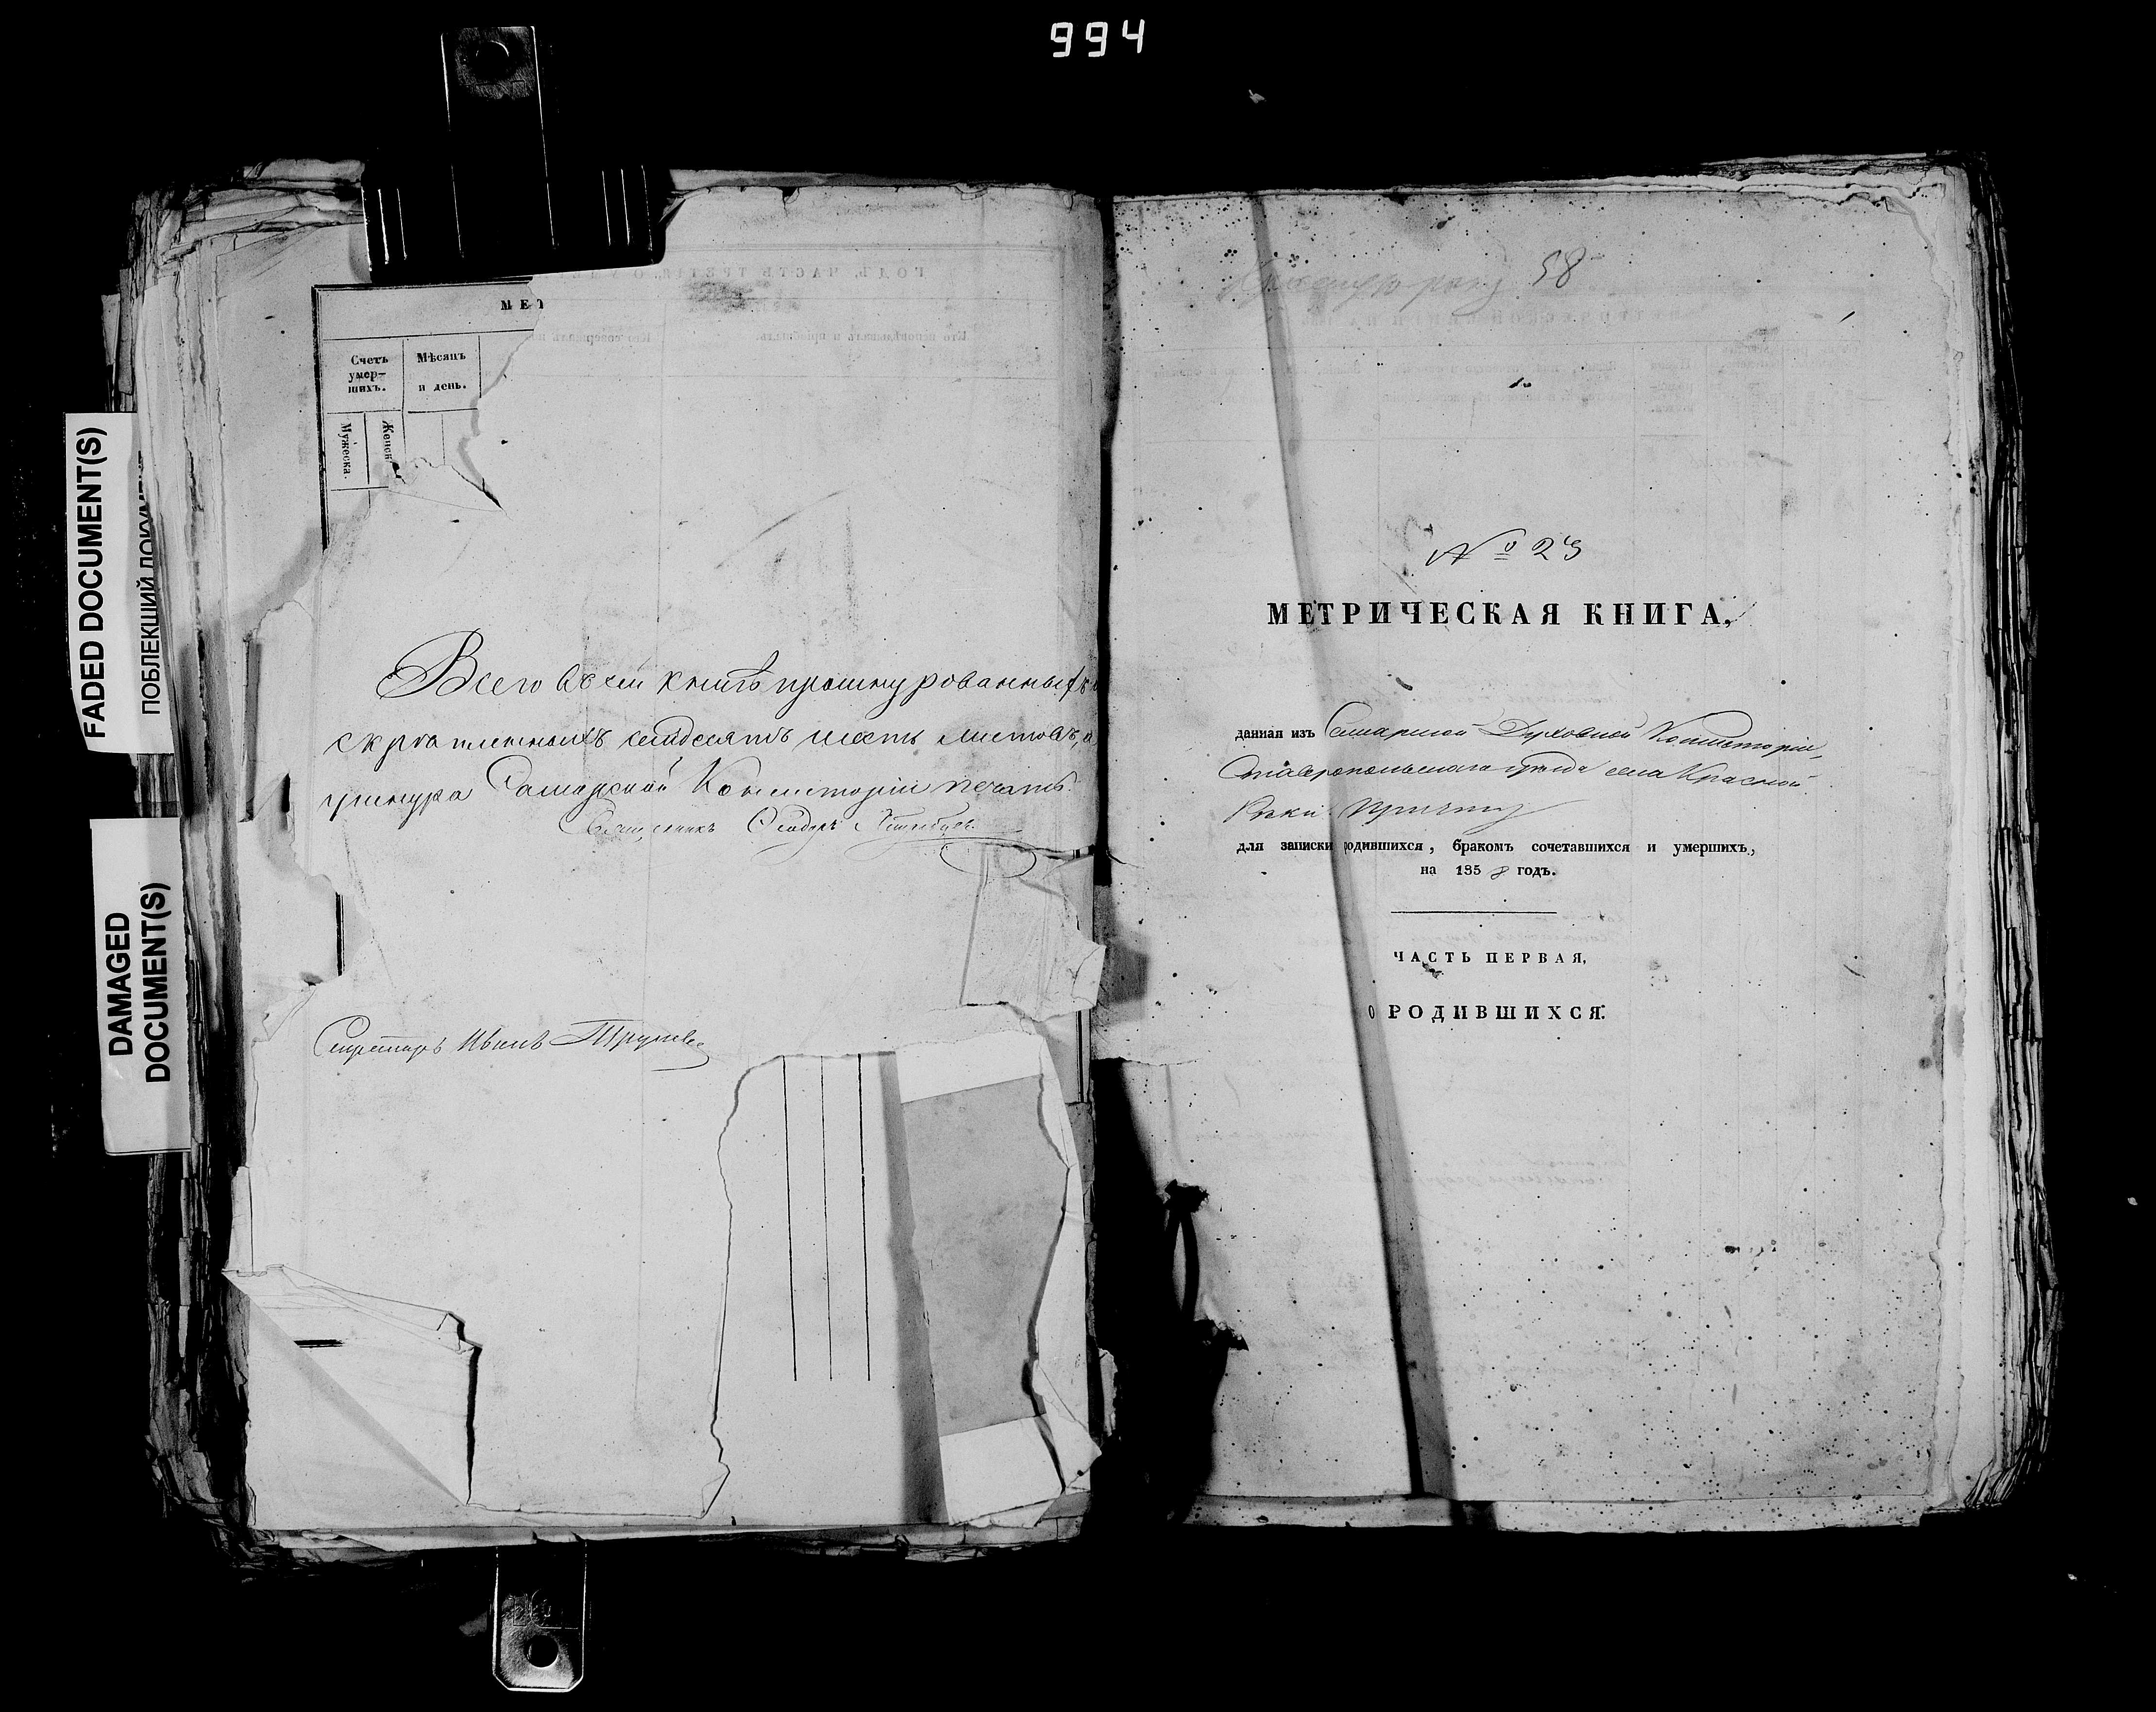 994
FADED DOCUMENT(S)
ПОБЛЕКШИЙ ДОКУМЕНТ
DAMAGED
DOCUMENT(S)
МЕТ
Счетъ умер– шихъ.
Мѣсяцъ и день.
Мужеска.
Женск
Всего въ сей книгѣ прошнурованныхъ
скрѣпленныхъ семдесятъ шесть листовъ, а
у шнура Самарской Консисторіи печать.
Священникъ
Секретарь Иванъ
58
№ 23
МЕТРИЧЕСКАЯ КНИГА,
данная изъ Самарской Духовной Консисторіи,
Ставропольскаго уѣзда села Красной
Рѣки причту
для записки родившихся, бракомъ сочетавшихся и умершихъ,
на 1858 годъ.
ЧАСТЬ ПЕРВАЯ,
О РОДИВШИХСЯ.